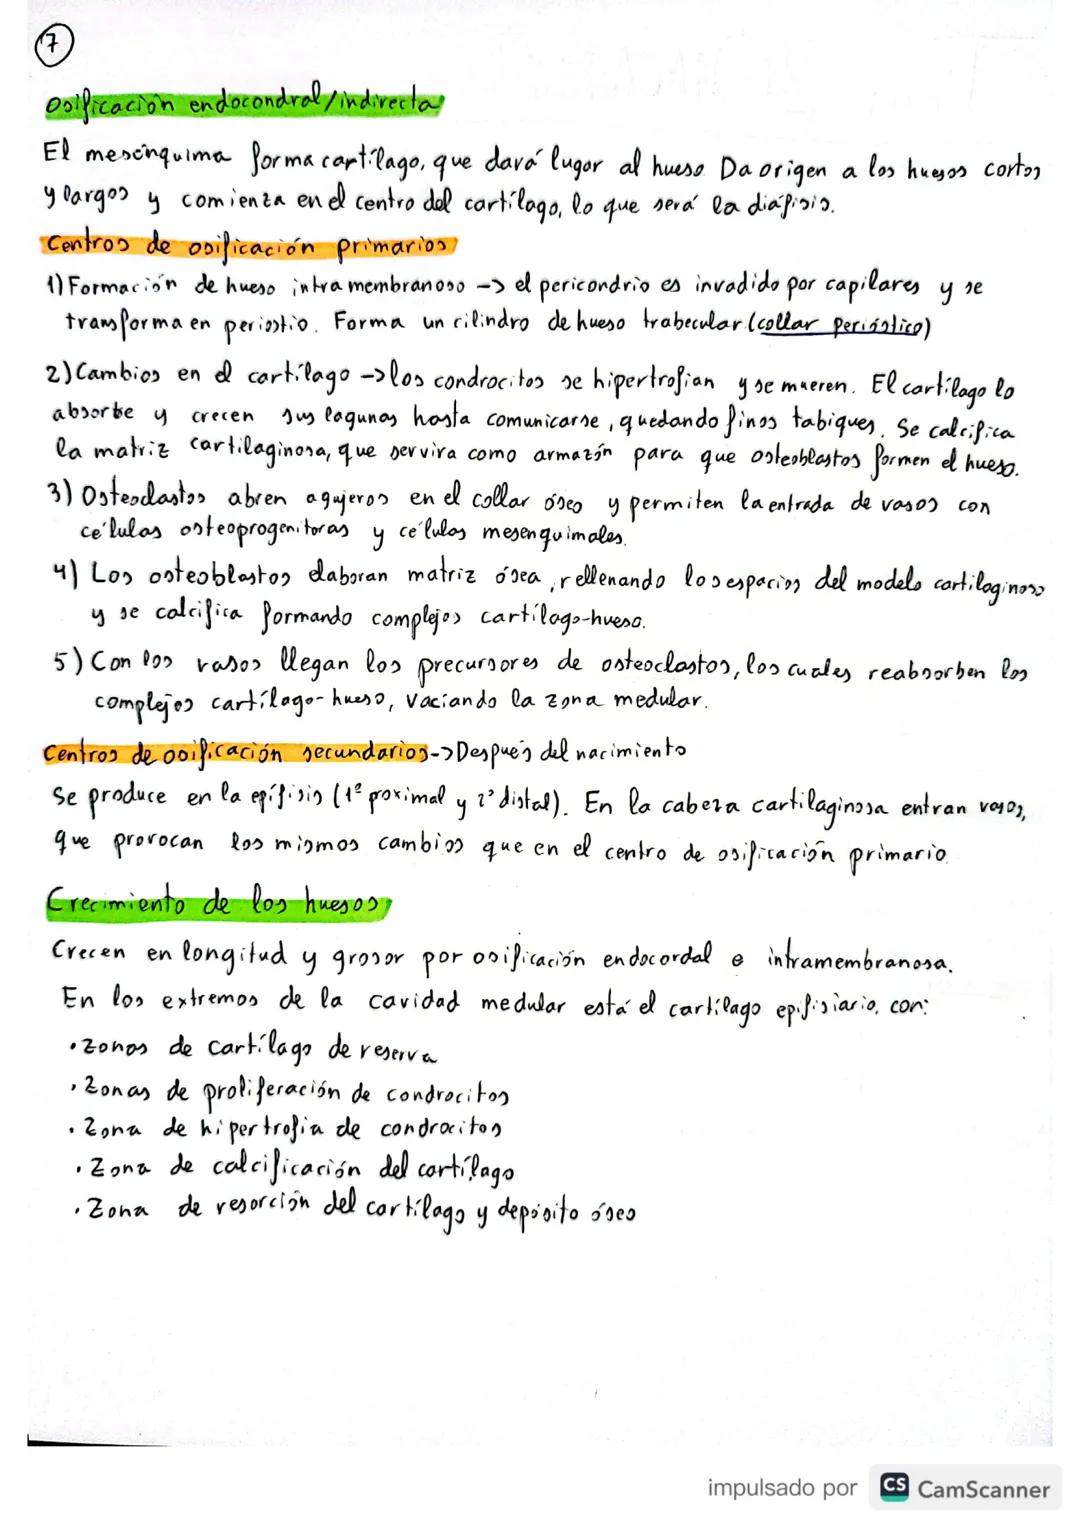 7
Osificación endocondral/indirecta
El mesénquima forma cartílago, que dará lugar al hueso. Da origen a los huesos cortos
y largos y comienza en el centro del cartílago, lo que será la diáfisis.
Centros de osificación primarios
1) Formación de hueso intramembranoso -> el pericondrio es invadido por capilares y se
transforma en periostio. Forma un cilindro de hueso trabecular (collar perióstico)
2) Cambios en el cartílago -> los condrocitos se hipertrofian y se mueren. El cartílago lo
absorbe y crecen sus lagunas hasta comunicarse, quedando finos tabiques. Se calcifica
la matriz cartilaginosa, que servira como armazón para que osteoblastos formen el hueso.
3) Osteoclastos abren agujeros en el collar óseo y permiten la entrada de vasos con
células osteoprogenitoras y células mesenquimales.
4) Los osteoblastos elaboran matriz ósea, rellenando los espacios del modelo cartilaginoso
y se calcifica formando complejos cartílago-hueso.
5) Con los vasos llegan los precursores de osteoclastos, los cuales reabsorben los
complejos cartílago-hueso, vaciando la zona medular.
Centros de osificación secundarios -> Después del nacimiento
Se produce en la epífisis (1º proximal y 2º distal). En la cabeza cartilaginosa entran vasos,
que provocan los mismos cambios que en el centro de osificación primario.
Crecimiento de los huesos
Crecen en longitud y grosor por osificación endocordal e intramembranosa.
En los extremos de la cavidad medular está el cartílago epifisiario, con:
• Zonas de cartílago de reserva
• Zonas de proliferación de condrocitos
• Zona de hipertrofia de condrocitos
• Zona de calcificación del cartílago
• Zona de resorción del cartílago y depósito óseo
impulsado por CS CamScanner